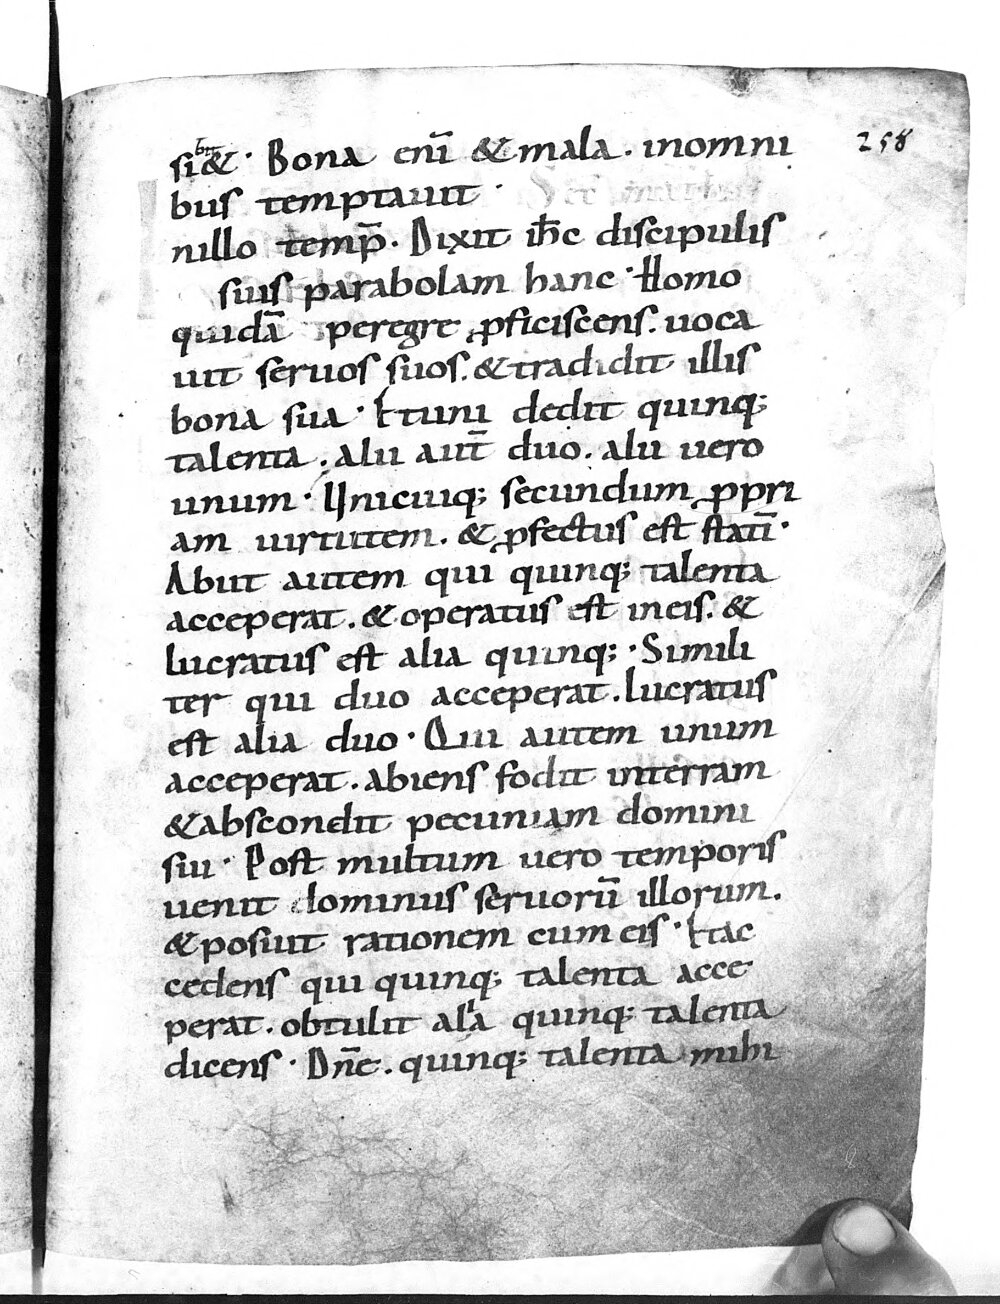 si&. Bona eni̅ & mala. inomni
258
bus temptauit.
nillo temp̅. Dixit ih̅c discipulis
suis parabolam hanc. Homo
quida̅ peregre ꝓficiscens. uoca
uit seruos suos. & tradidit illis
bona sua. Et uni dedit quinq;
talenta. alii aut̅ duo. alii uero
unum. Unicuiq; secundum ꝓpri
am uirtutem. & ꝓfectus est stati̅.
Abiit autem qui quinq; talenta
acceperat. & operatus est ineis. &
lucratus est alia quinq;. Simili
ter qui duo acceperat. lucratus
est alia duo. Qui autem unum
acceperat. abiens fodit interram
& abscondit pecuniam domini
sui. Post multum uero temporis
uenit dominus seruoru̅ illorum.
& posuit rationem cum eis. Et ac
cedens qui quinq; talenta acce
perat. obtulit alia quinq; talenta
dicens. Dn̅e. quinq; talenta mihi